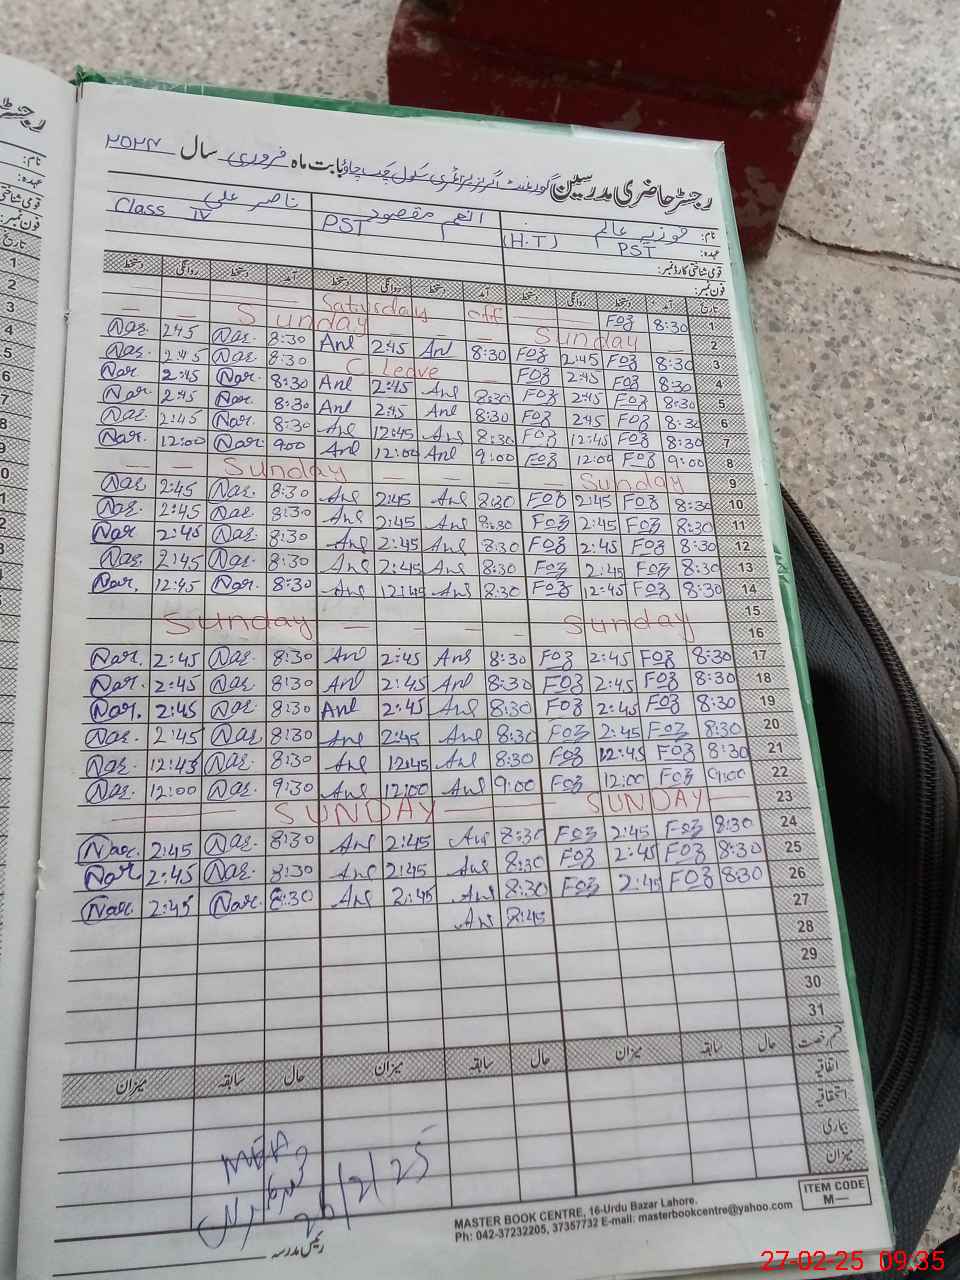 رجسٹر حاضری مدرسین گورنمنٹ گرلز پرائمری سکول چک بابت ماہ فروری سال ۲۰۲۴
نام: فوزیہ عالم انعم مقصود ناصر علی
عہدہ: PST (H.T) PST Class IV
قومی شناختی کارڈ نمبر:
فون نمبر:
تاریخ آمد دستخط روانگی دستخط آمد دستخط روانگی دستخط آمد دستخط روانگی دستخط
Saturday off Foz 8:30 1
— — Sunday — — — Sunday — 2
Nar. 2:45 Nar. 8:30 Anl 2:45 Anl 8:30 Foz 2:45 Foz 8:30 3
Nar. 2:45 Nar. 8:30 C. Leave — Foz 2:45 Foz 8:30 4
Nar 2:45 Nar. 8:30 Anl 2:45 Anl 8:30 Foz 2:45 Foz 8:30 5
Nar. 2:45 Nar. 8:30 Anl 2:45 Anl 8:30 Foz 2:45 Foz 8:30 6
Nar. 2:45 Nar. 8:30 Anl 12:45 Anl 8:30 Foz 12:45 Foz 8:30 7
Nar. 12:00 Nar. 9:00 Anl 12:00 Anl 9:00 Foz 12:00 Foz 9:00 8
— — Sunday — — — Sunday 9
Nar. 2:45 Nar. 8:30 Anl 2:45 Anl 8:30 Foz 2:45 Foz 8:30 10
Nar. 2:45 Nar. 8:30 Anl 2:45 Anl 8:30 Foz 2:45 Foz 8:30 11
Nar 2:45 Nar. 8:30 Anl 2:45 Anl 8:30 Foz 2:45 Foz 8:30 12
Nar. 2:45 Nar. 8:30 Anl 2:45 Anl 8:30 Foz 2:45 Foz 8:30 13
Nar. 12:45 Nar. 8:30 Anl 12:45 Anl 8:30 Foz 12:45 Foz 8:30 14
15
Sunday — — — — Sunday 16
Nar. 2:45 Nar. 8:30 Anl 2:45 Anl 8:30 Foz 2:45 Foz 8:30 17
Nar. 2:45 Nar. 8:30 Anl 2:45 Anl 8:30 Foz 2:45 Foz 8:30 18
Nar. 2:45 Nar. 8:30 Anl 2:45 Anl 8:30 Foz 2:45 Foz 8:30 19
Nar. 2:45 Nar. 8:30 Anl 2:45 Anl 8:30 Foz 2:45 Foz 8:30 20
Nar. 12:45 Nar. 8:30 Anl 12:45 Anl 8:30 Foz 12:45 Foz 8:30 21
Nar. 12:00 Nar. 9:30 Anl 12:00 Anl 9:00 Foz 12:00 Foz 9:00 22
SUNDAY — SUNDAY — 23
Nar. 2:45 Nar. 8:30 Anl 2:45 Anl 8:30 Foz 2:45 Foz 8:30 24
Nar 2:45 Nar. 8:30 Anl 2:45 Anl 8:30 Foz 2:45 Foz 8:30 25
Nar. 2:45 Nar. 8:30 Anl 2:45 Anl 8:30 Foz 2:45 Foz 8:30 26
Anl 8:45 27
28
29
30
31
قسم رخصت حال سابقہ میزان حال سابقہ میزان حال سابقہ میزان
اتفاقیہ
استحقاقیہ
بیماری
میزان
MEA
26/2/25
رئیس مدرسہ
MASTER BOOK CENTRE, 16-Urdu Bazar Lahore.
Ph: 042-37232205, 37357732 E-mail: masterbookcentre@yahoo.com
ITEM CODE
M—
رجسٹر
نام:
عہدہ:
قومی شناختی
فون نمبر:
تاریخ
1
2
3
4
5
6
7
8
9
27-02-25 09:35